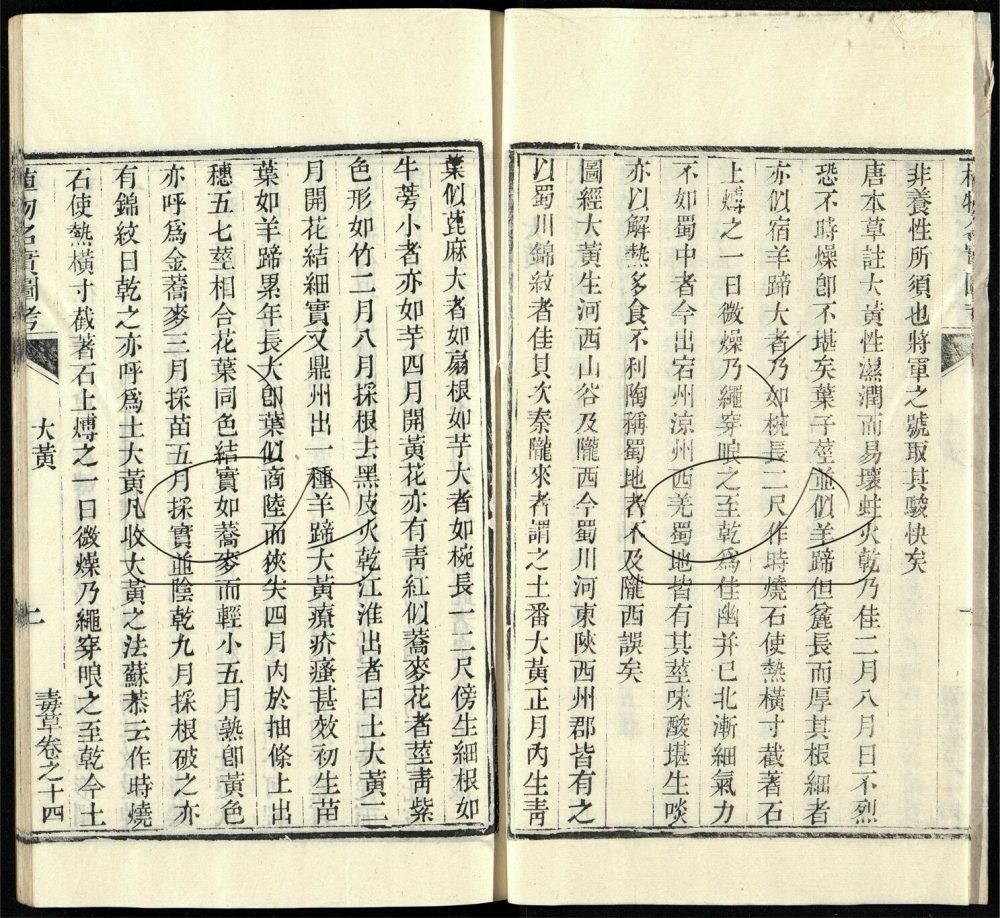 植物名實圖考
非養性所須也將軍之號取其駿快矣
唐本草註大黃性濕潤而易壞蛀火乾乃佳二月八月日不烈
恐不時燥卽不堪矣葉子莖並似羊蹄但麄長而厚其根細者
亦似宿羊蹄大者乃如椀長二尺作時燒石使熱橫寸截著石
上煿之一日微燥乃繩穿晾之至乾爲佳幽并已北漸細氣力
不如蜀中者今出宕州涼州西羌蜀地皆有其莖味酸堪生啖
亦以解熱多食不利陶稱蜀地者不及隴西誤矣
圖經大黃生河西山谷及隴西今蜀川河東陝西州郡皆有之
以蜀川錦紋者佳其次秦隴來者謂之土番大黃正月內生青
葉似蓖麻大者如扇根如芋大者如椀長一二尺傍生細根如
牛蒡小者亦如芋四月開黃花亦有青紅似蕎麥花者莖青紫
色形如竹二月八月採根去黑皮火乾江淮出者曰土大黃二
月開花結細實又鼎州出一種羊蹄大黃療疥瘙甚效初生苗
葉如羊蹄累年長大卽葉似商陸而狹尖四月內於抽條上出
穗五七莖相合花葉同色結實如蕎麥而輕小五月熟卽黃色
亦呼爲金蕎麥三月採苗五月採實並陰乾九月採根破之亦
有錦紋日乾之亦呼爲土大黃凡收大黃之法蘇恭云作時燒
石使熱橫寸截著石上煿之一日微燥乃繩穿晾之至乾今土
植物名實圖考 大黃 上 毒草卷之十四